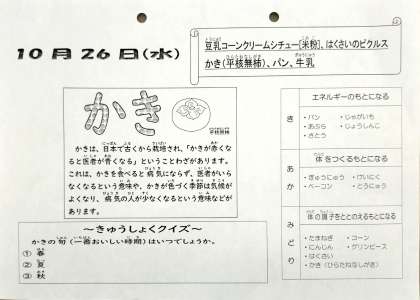 10月26日(水)
豆乳コーンクリームシチュー[米粉]、はくさいのピクルス
かき(平核無柿)、パン、牛乳
かき
平核無柿
かきは、日本で古くから栽培され、「かきが赤くなる
と医者が青くなる」ということわざがあります。
これは、かきを食べると病気にならず、医者がいら
なくなるという意味や、かきが色づく季節は気候が
よくなり、病気の人が少なくなるという意味などが
あります。
～きゅうしょくクイズ～
かきの旬(一番おいしい時期)はいつでしょうか。
① 春
② 夏
③ 秋
エネルギーのもとになる
き
・パン ・じゃがいも
・あぶら ・じょうしんこ
・さとう
体をつくるもとになる
あか
・ぎゅうにゅう ・けいにく
・ベーコン ・とうにゅう
体の調子をととのえるもとになる
みどり
・たまねぎ ・コーン
・にんじん ・グリンピース
・はくさい
・かき(ひらたねなしがき)